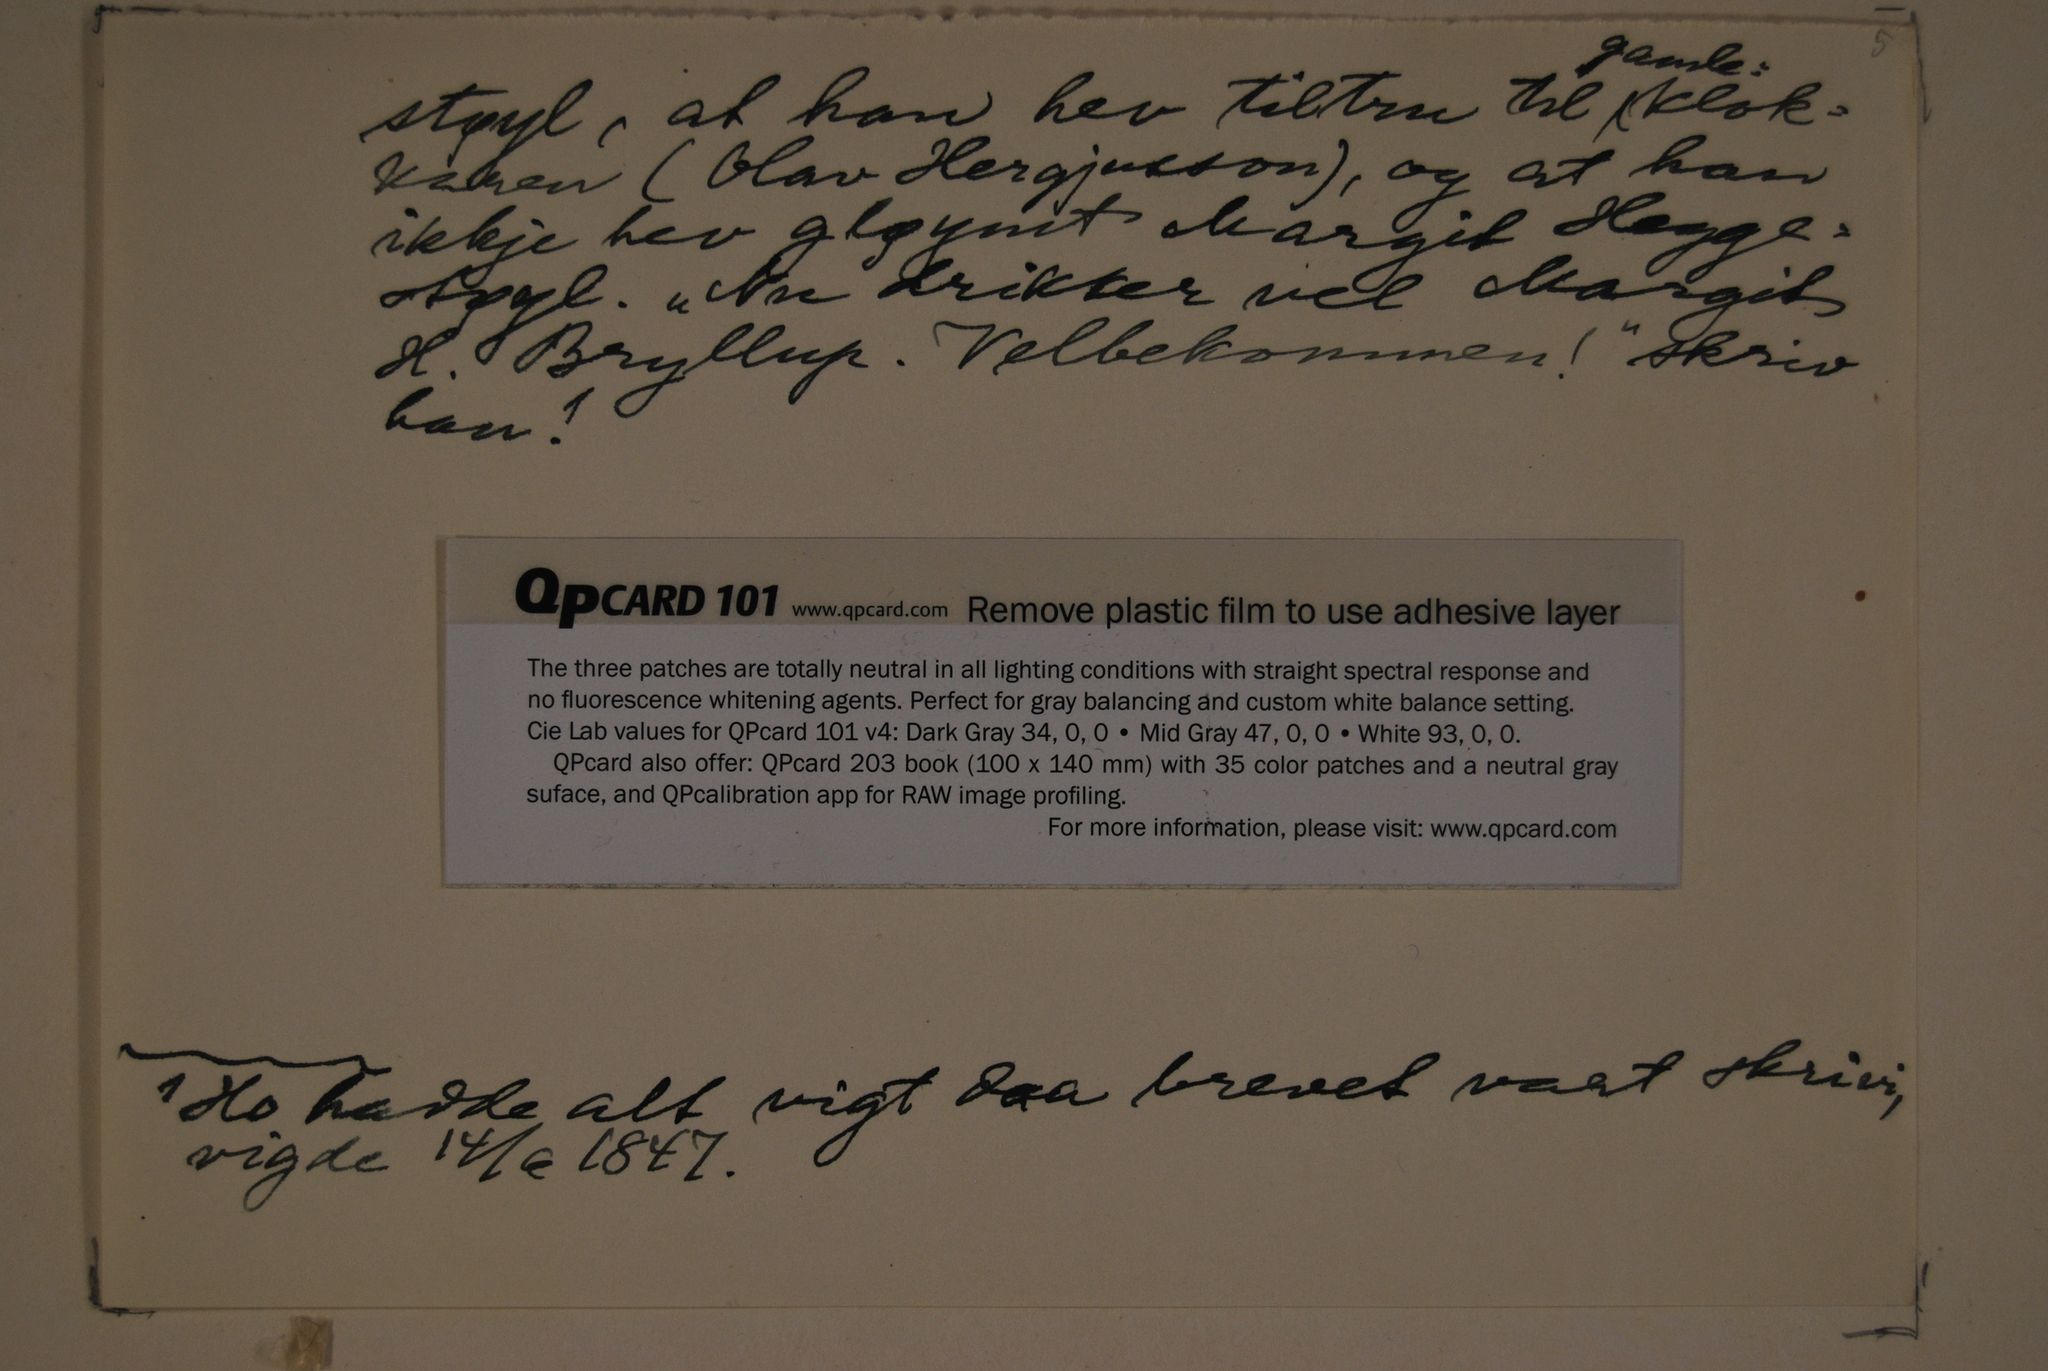 5
gamle=
støyl, at han hev tiltru til klok=
karen (Olav Hergjusson), og at han
ikkje hev gløymt Margit Hegge=
støyl. „Nu drikker vel Margit
H. Bryllup. Velbekommen!" skriv
han!
QPCARD 101 www.qpcard.com Remove plastic film to use adhesive layer
The three patches are totally neutral in all lighting conditions with straight spectral response and
no fluorescence whitening agents. Perfect for gray balancing and custom white balance setting.
Cie Lab values for QPcard 101 v4: Dark Gray 34, 0, 0 • Mid Gray 47, 0, 0 • White 93, 0, 0.
QPcard also offer: QPcard 203 book (100 x 140 mm) with 35 color patches and a neutral gray
suface, and QPcalibration app for RAW image profiling.
For more information, please visit: www.qpcard.com
1 Ho hadde alt vigt daa brevet vart skrivi,
vigde 14/6 1847.